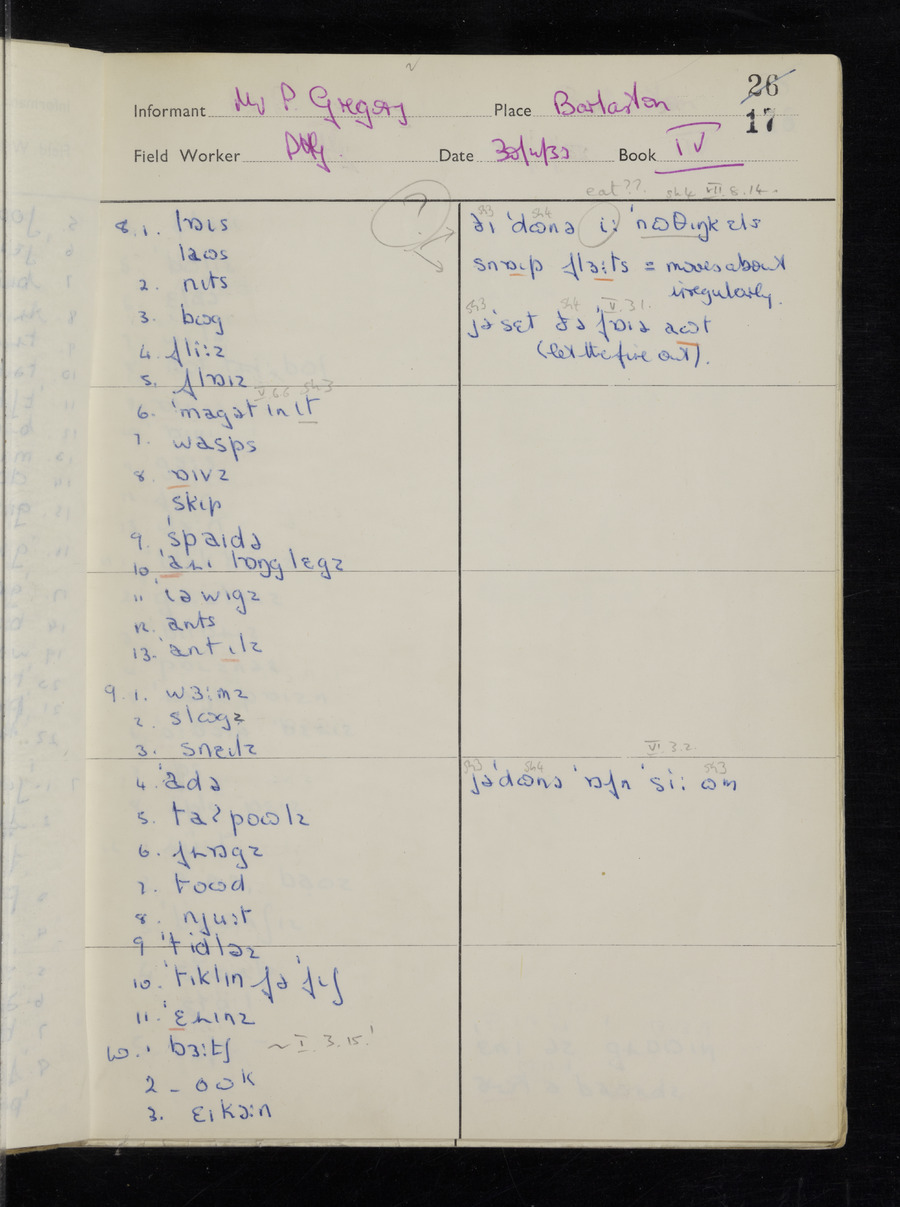 26
17
Informant Mr P. Gregory Place Barlaston
Field Worker Date Book IV
eat??. sh4 VII.8.14.
8.1. lɒɪs
laʊs
2. nɪts
3. bʊg
4. fli:z
5. flɒɪz
V.6.6 sh3
6. 'magət ɪn ɪt
7. wasps
8. ɒɪvz
skɪp
9. 'spaɪdə
10. 'aɹɪ lɒŋg lɛgz
11. 'ɪəwɪgz
12. ants
13. 'antɪlz
9.1. wɜ:mz
2. slʊgz
3. sneɪlz
4. 'adə
5. taʔpoʊlz
6. fɹɒgz
7. toʊd
8. njuɪt
9. 'tɪdləz
10. 'tɪklɪn fə 'fɪʃ
11. 'ɛɹɪnz
10.1 bɜ:tʃ ~ I.3.15!
2 – oʊk
3. ɛɪkɔ:n
?
sh3 sh4
ðɪ 'dʊnə i: 'nʊθɪŋk ɛls
snɒɪp flɜɪts = moves about
irregularly.
sh3 sh4 V.3.1.
jə 'sɛt ðə fɒɪə aʊt
(let the fire out).
VI.3.2.
sh3 sh4 sh3
jə 'dʊnə 'ɒfn 'si: ʊm